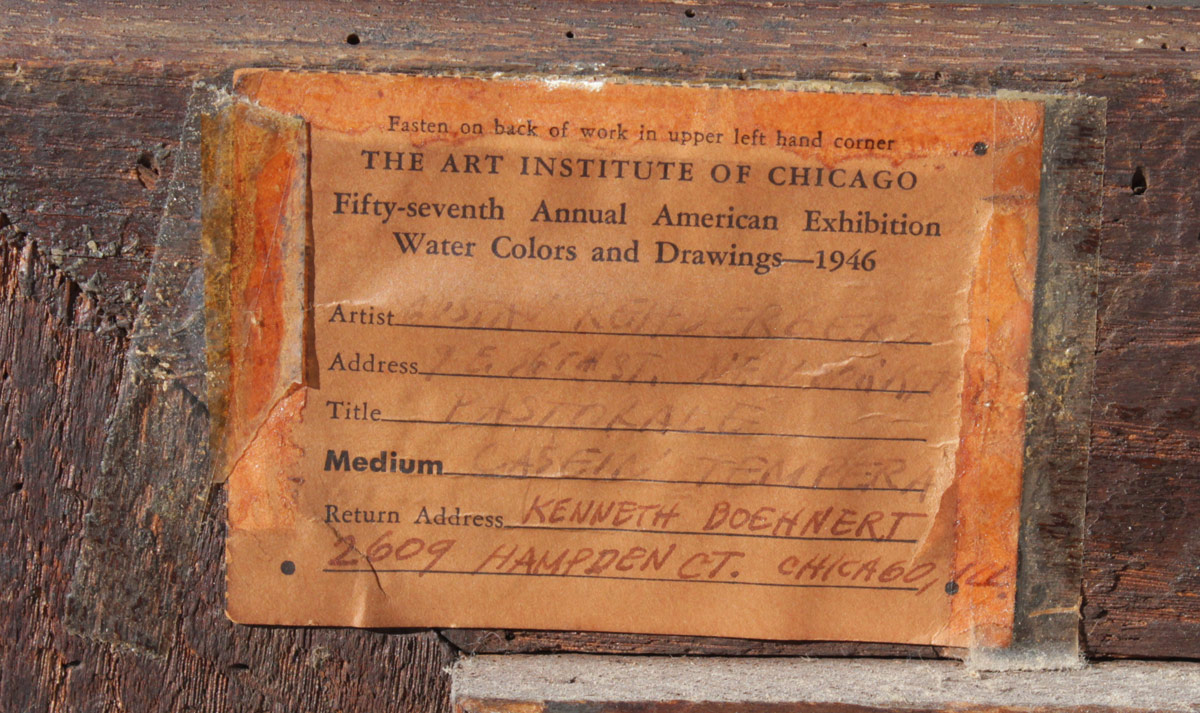 Fasten on back of work in upper left hand corner
THE ART INSTITUTE OF CHICAGO
Fifty-seventh Annual American Exhibition
Water Colors and Drawings—1946
Artist
Address E. ST.
Title PASTORALE
Medium CASEIN TEMPERA
Return Address KENNETH BOEHNERT
2609 HAMPDEN CT. CHICAGO, ILL